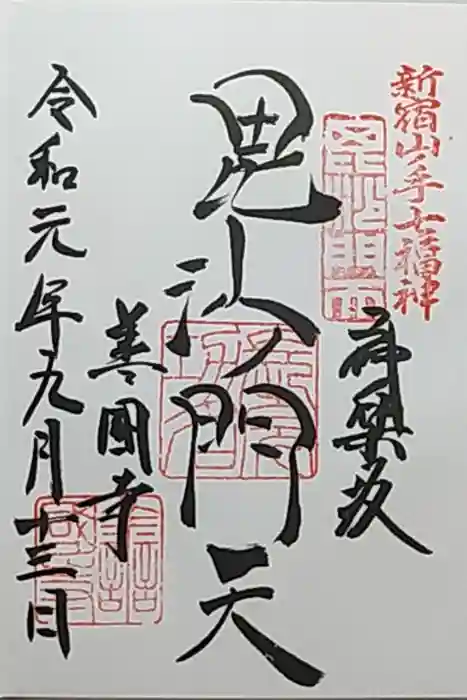 新宿山ノ手七福神
毘沙門天
神楽坂
毘沙門天
善國寺
令和元年九月十三日